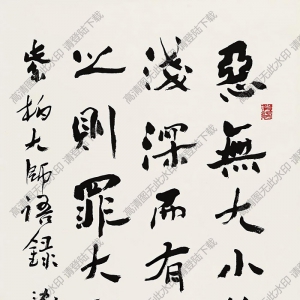 惡無大小
淺深而有
之則罪大
紫柏大師語錄